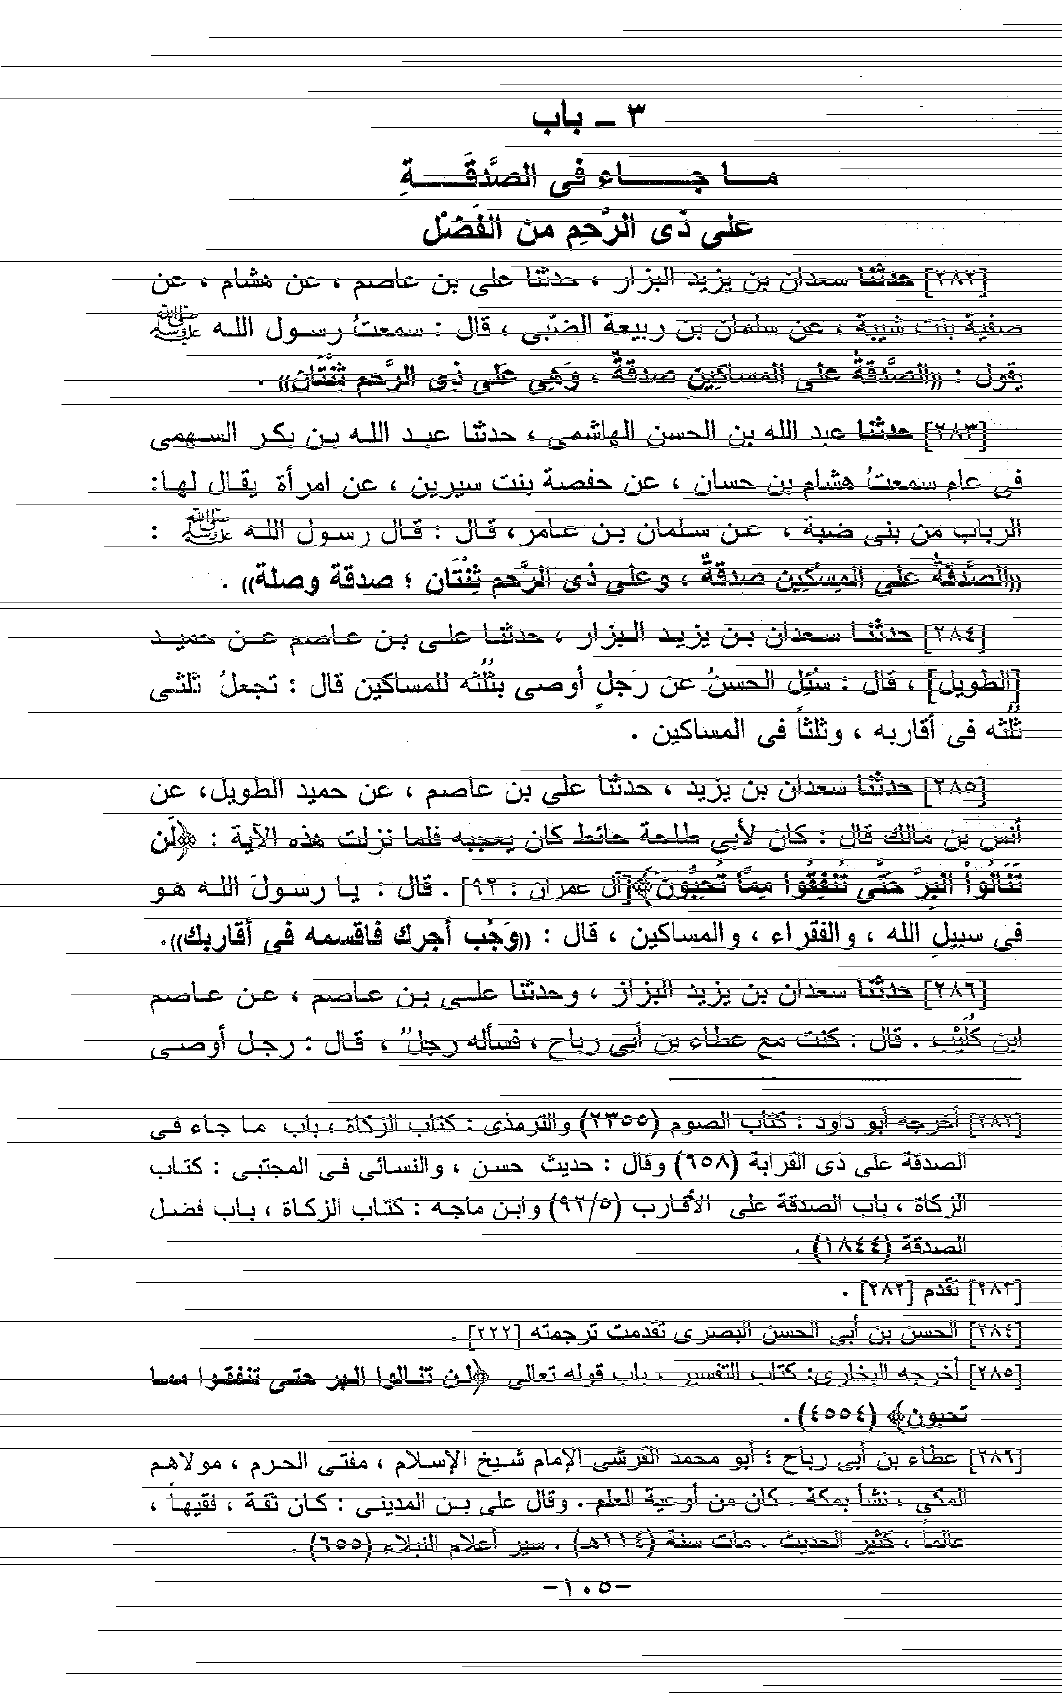 ٣ ــ باب
مـــا جـــــاء فى الصَّدقَـــــةِ
على ذى الرَّحِم من الفَضْل
[٢٨٢] حدثنا سعدان بن يزيد البزار ، حدثنا على بن عاصم ، عن هشام ، عن
صفية بنت شيبة ، عن سلمان بن ربيعة الضّبّى ، قال : سمعتُ رسول الله ﷺ
يقول : ((الصَّدقةُ على المساكين صدقةٌ ، وَهِى عَلَى ذى الرَّحم ثِنْتَان)) .
[٢٨٣] حدثنا عبد الله بن الحسن الهاشمى ، حدثنا عبد الله بن بكر السهمى
فى عام سمعتُ هشام بن حسان ، عن حفصة بنت سيرين ، عن امرأة يقال لها:
الرباب من بنى ضبة ، عن سلمان بن عامر، قال : قال رسول الله ﷺ :
((الصَّدقةُ على المِسْكين صدقةٌ ، وعلى ذى الرَّحم ثِنْتَان ؛ صدقة وصلة)) .
[٢٨٤] حدثنا سعدان بن يزيد البزار ، حدثنا على بن عاصم عن حميد
[الطويل] ، قال : سُئِل الحسنُ عن رَجلٍ أوصى بثُلُثه للمساكين قال : تجعلُ ثلثى
ثُلُثه فى أقاربه ، وثلثاً فى المساكين .
[٢٨٥] حدثنا سعدان بن يزيد ، حدثنا على بن عاصم ، عن حميد الطويل، عن
أنس بن مالك قال : كان لأبي طلحة حائط كان يعجبه فلما نزلت هذه الآية : ﴿لَن
تَنَالُواْ الْبِرَّ حَتَّى تُنْفِقُوا مِمَّا تُحِبُّونَ﴾[آل عمران : ٩٢] . قال : يا رسولَ الله هو
فى سبيلِ الله ، والفقراء ، والمساكين ، قال : ((وَجُب أجرك فاقسمه فى أقاربك)).
[٢٨٦] حدثنا سعدان بن يزيد البزاز ، وحدثنا على بن عاصم ، عن عاصم
ابن كُلَيْبٍ . قال : كنت مع عطاء بن أبى رباح ، فسأله رجلٌ ، قال : رجل أوصى
[٢٨٢] أخرجه أبو داود : كتاب الصوم (٢٣٥٥) والترمذى : كتاب الزكاة ، باب ما جاء فى
الصدقة على ذى القرابة (٦٥٨) وقال : حديث حسن ، والنسائى فى المجتبى : كتاب
الزكاة ، باب الصدقة على الأقارب (٩٢/٥) وابن ماجه : كتاب الزكاة ، باب فضل
الصدقة (١٨٤٤) .
[٢٨٣] تقدم [٢٨٢] .
[٢٨٤] الحسن بن أبي الحسن البصرى تقدمت ترجمته [٢٢٢] .
[٢٨٥] أخرجه البخارى: كتاب التفسير ، باب قوله تعالى ﴿لن تنالوا البر حتى تنفقوا مما
تحبون﴾ (٤٥٥٤) .
[٢٨٦] عطاء بن أبى رباح ؛ أبو محمد القرشى الإمام شيخ الإسلام ، مفتى الحرم ، مولاهم
المكى ، نشأ بمكة . كان من أوعية العلم . وقال على بن المدينى : كان ثقة ، فقيهاً ،
عالماً ، كثير الحديث ، مات سنة (١١٤هـ) . سير أعلام النبلاء (٦٥٥) .
-١٠٥-